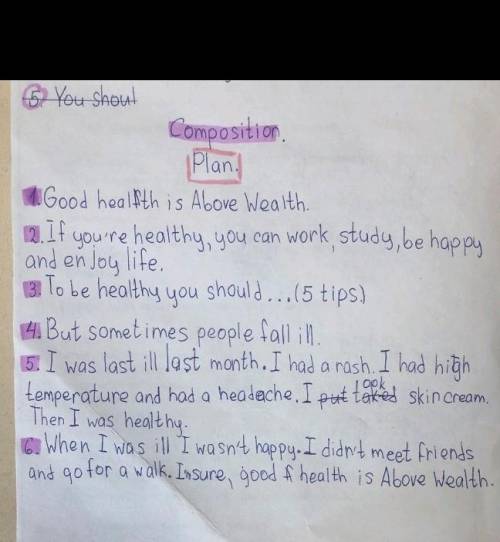 5. You shoul
Composition.
Plan.
1. Good health is Above Wealth.
2. If you're healthy, you can work, study, be happy
and enjoy life.
3. To be healthy you should...(5 tips)
4. But sometimes people fall ill.
5. I was last ill last month. I had a rash. I had high
temperature and had a headache. I put taked took skin cream.
Then I was healthy.
6. When I was ill I wasn't happy. I didn't meet friends
and go for a walk. Insure, good health is Above Wealth.